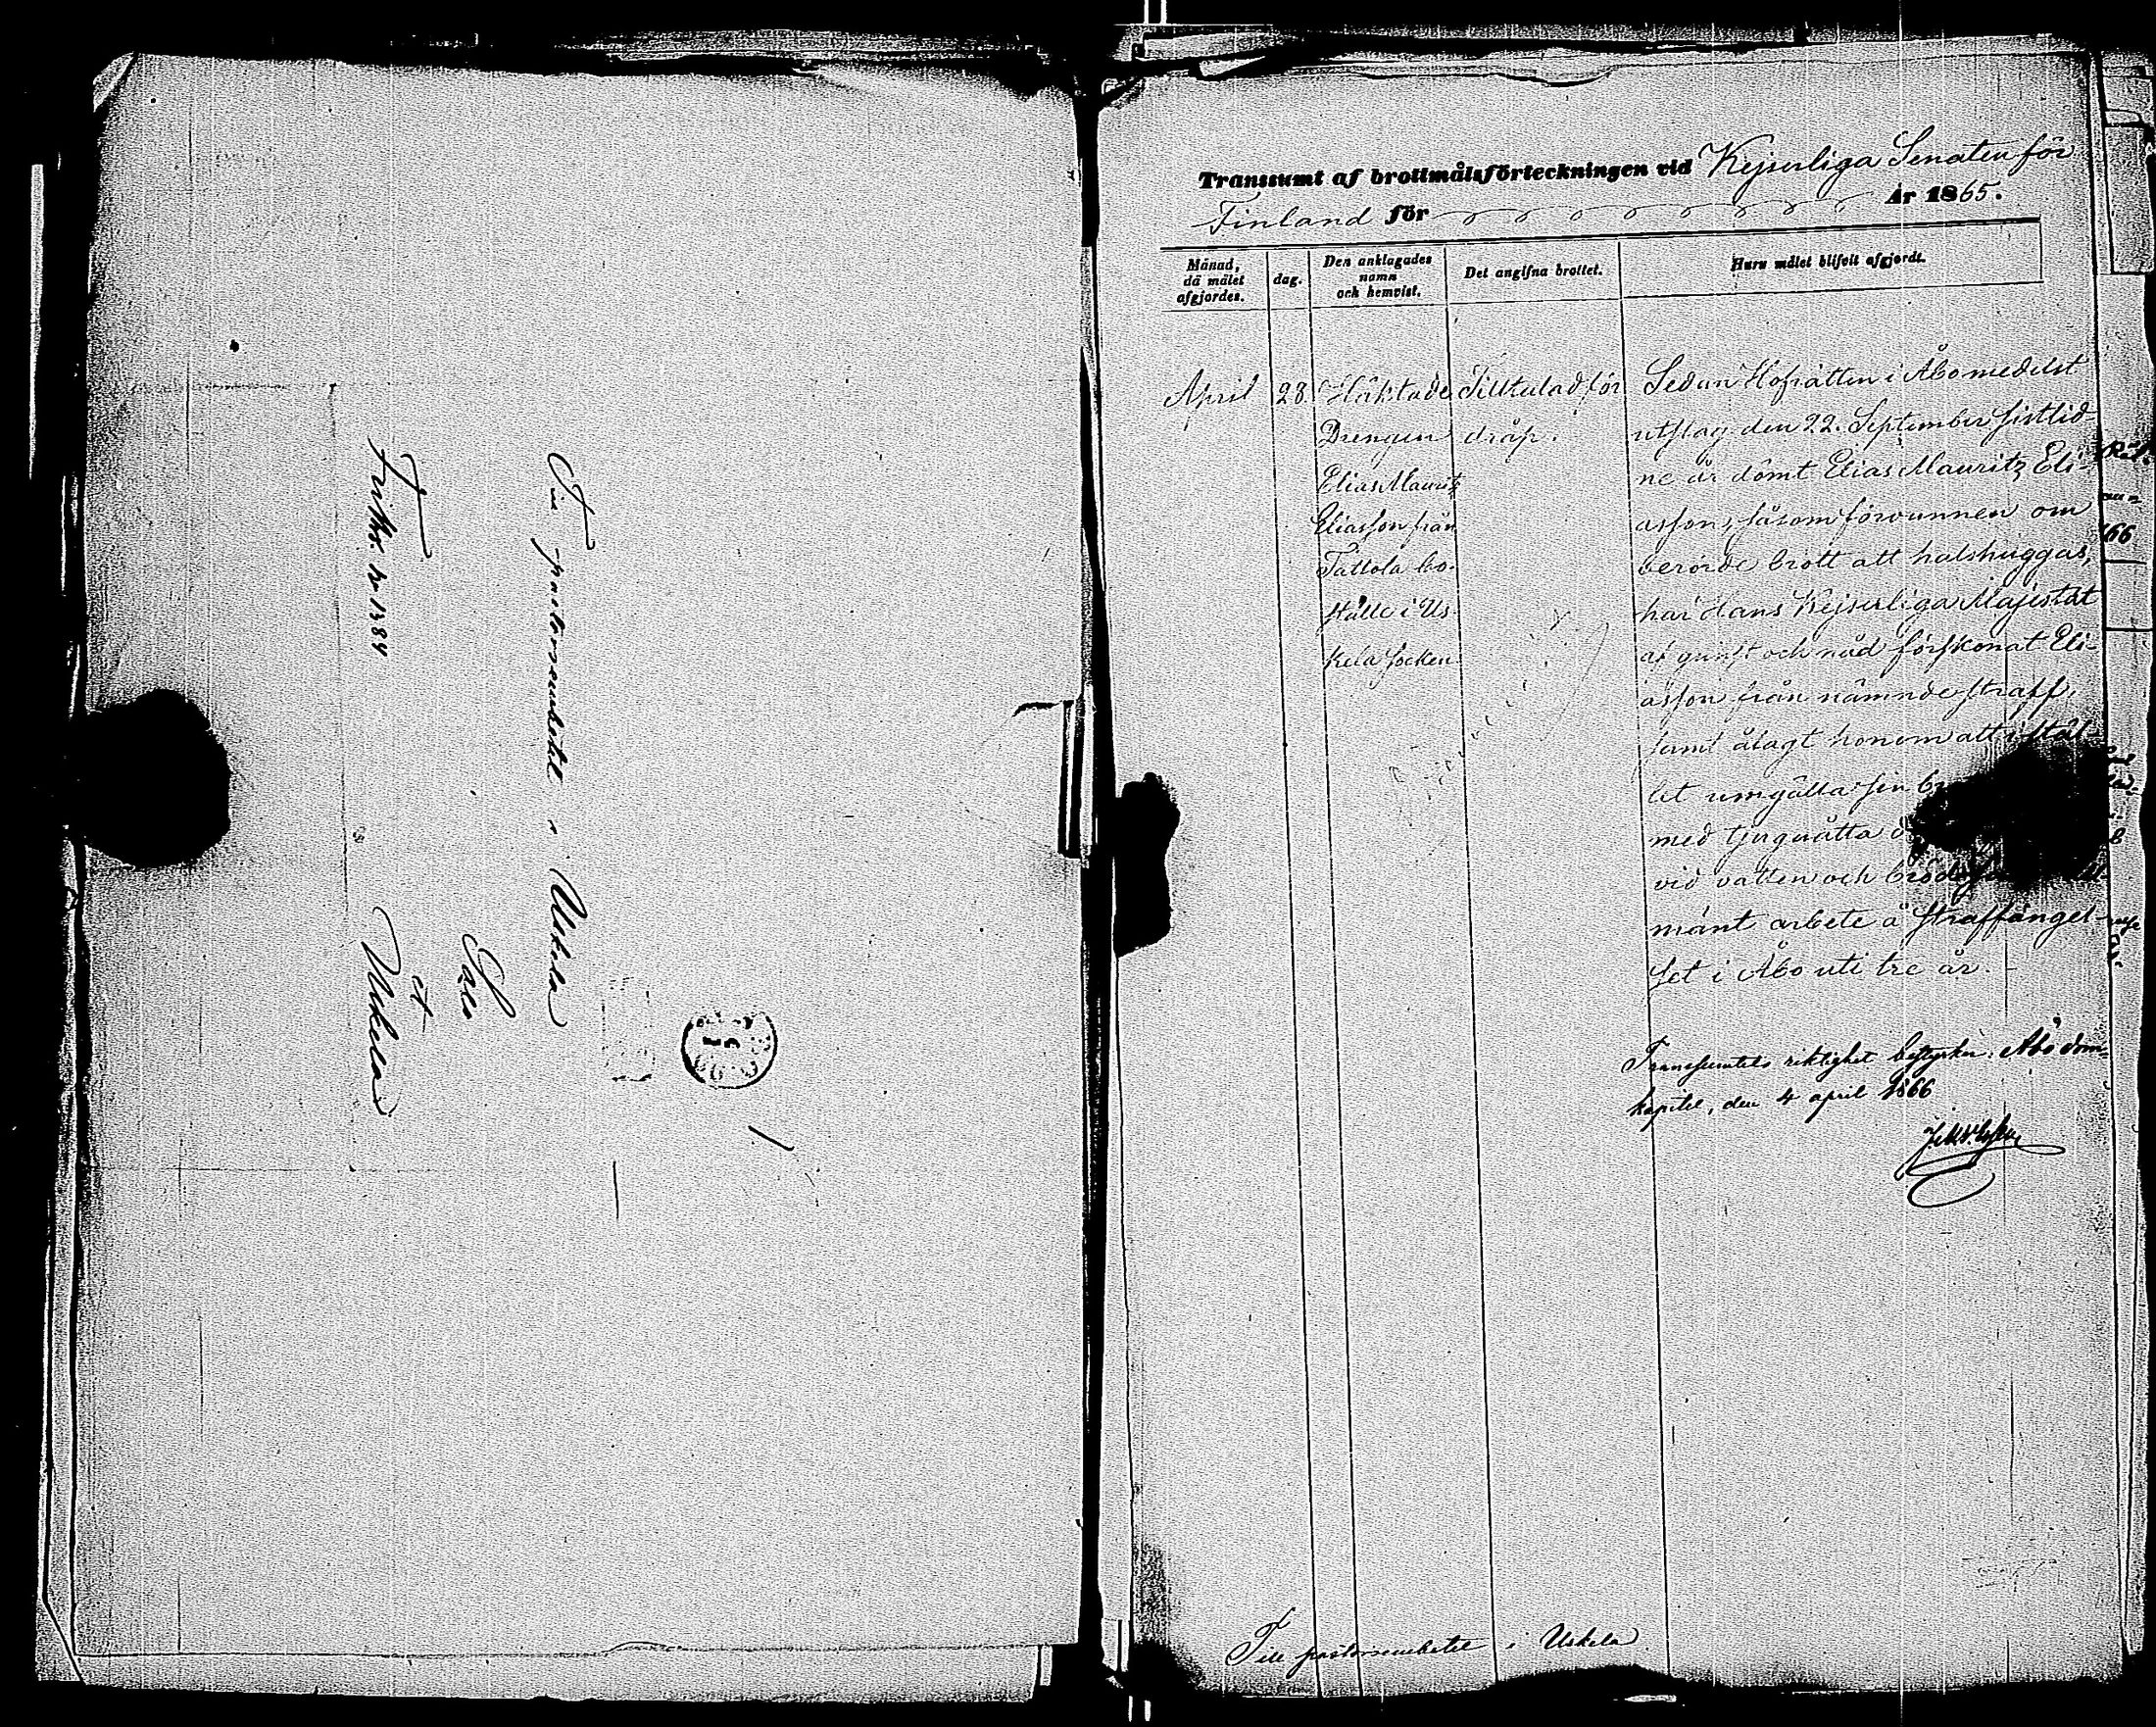 Till pastorsembetet i Uskela
Salo
et
Uskela
Friftbr. N 1384
15
Transsumt af brottmålsförteckningen vid Kejserliga Senaten för
Finland för År 1865.
Månad,
då målet
afgjordes.
dag.
Den anklagades
namn
och hemvist.
Det angifna brottet.
Huru målet blifvit afgjordt.
April
28.
Häktade
Drengen
Elias Mauritz
Eliasson från
Tattola bo-
ställe i Us-
kela socken.
Tilltalad för
dråp.
Sedan Hofrätten i Åbo medelst
utslag den 22. September sistlid-
ne år dömt Elias Mauritz Eli-
asson, såsom förvunnen om
berörde brott att halshuggas,
har Hans Kejserliga Majestät
af gunst och nåd förskonat Eli-
asson från nämnde straff,
samt ålagt honom att i stäl-
let umgälla sin
med tjuguåtta
vid vatten och bröd
mänt arbete å straffängel-
set i Åbo uti tre år.
Transsumtets riktighet bestyrker: Åbo dom-
kapitel, den 4 april 1866
Till pastorsembetet i Uskela